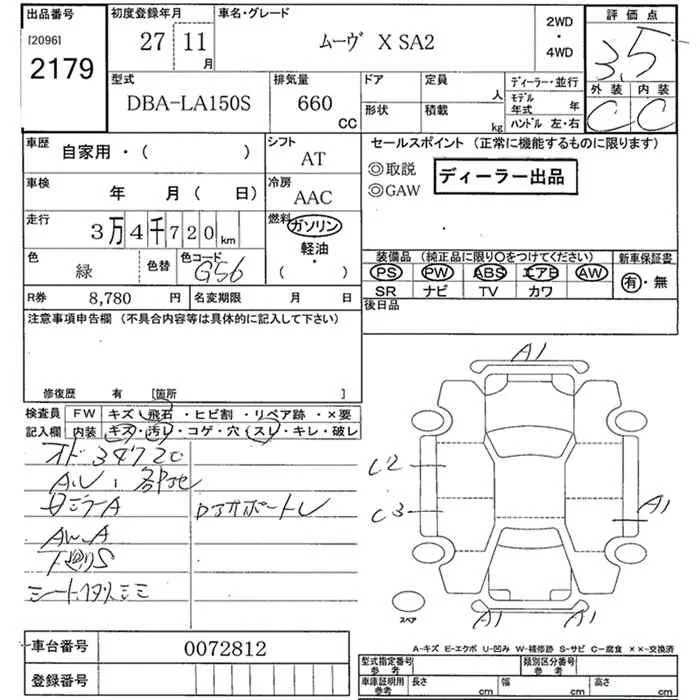 出品番号 初度登録年月 車名・グレード 2WD・4WD 評価点
[2096]
2179
27年 11月 ムーヴ X SA2 3.5
型式 排気量 ドア 定員 人 ディーラー・並行 外装 内装
DBA-LA150S 660 CC 形状 積載 kg モデル年式 年 C C
ハンドル 左・右
車歴 自家用・( ) シフト AT
セールスポイント (正常に機能するものに限ります)
◎取説
◎GAW
ディーラー出品
車検 年 月 ( 日) 冷房 AAC
走行 3万4千720km 燃料 ガソリン
軽油・
( )
色 緑 色替 色コード G56
装備品 (純正品に限り○をつけてください) 新車保証書
PS PW ABS エアB AW 有・無
SR ナビ TV カワ
R券 8,780 円 名変期限 月 日 後日品
注意事項申告欄 (不具合内容等は具体的に記入して下さい)
修復歴 有 [箇所 ]
検査員 FW キズ・飛石・ヒビ割・リペア跡・×要
記入欄 内装 キズ・汚レ・コゲ・穴・スレ・キレ・破レ
オド34720
A.U: 各部
A ロアサポートレ
AW.A
下廻りS
シート
A1
C2
C3
A1
A1 A1
スペア
車台番号 0072812
登録番号
A-キズ E-エクボ U-凹み W-補修跡 S-サビ C-腐食 ××-交換済
型式指定番号 参考 類別区分番号 参考
車庫証明用 参考 長さ cm 幅 cm 高さ cm